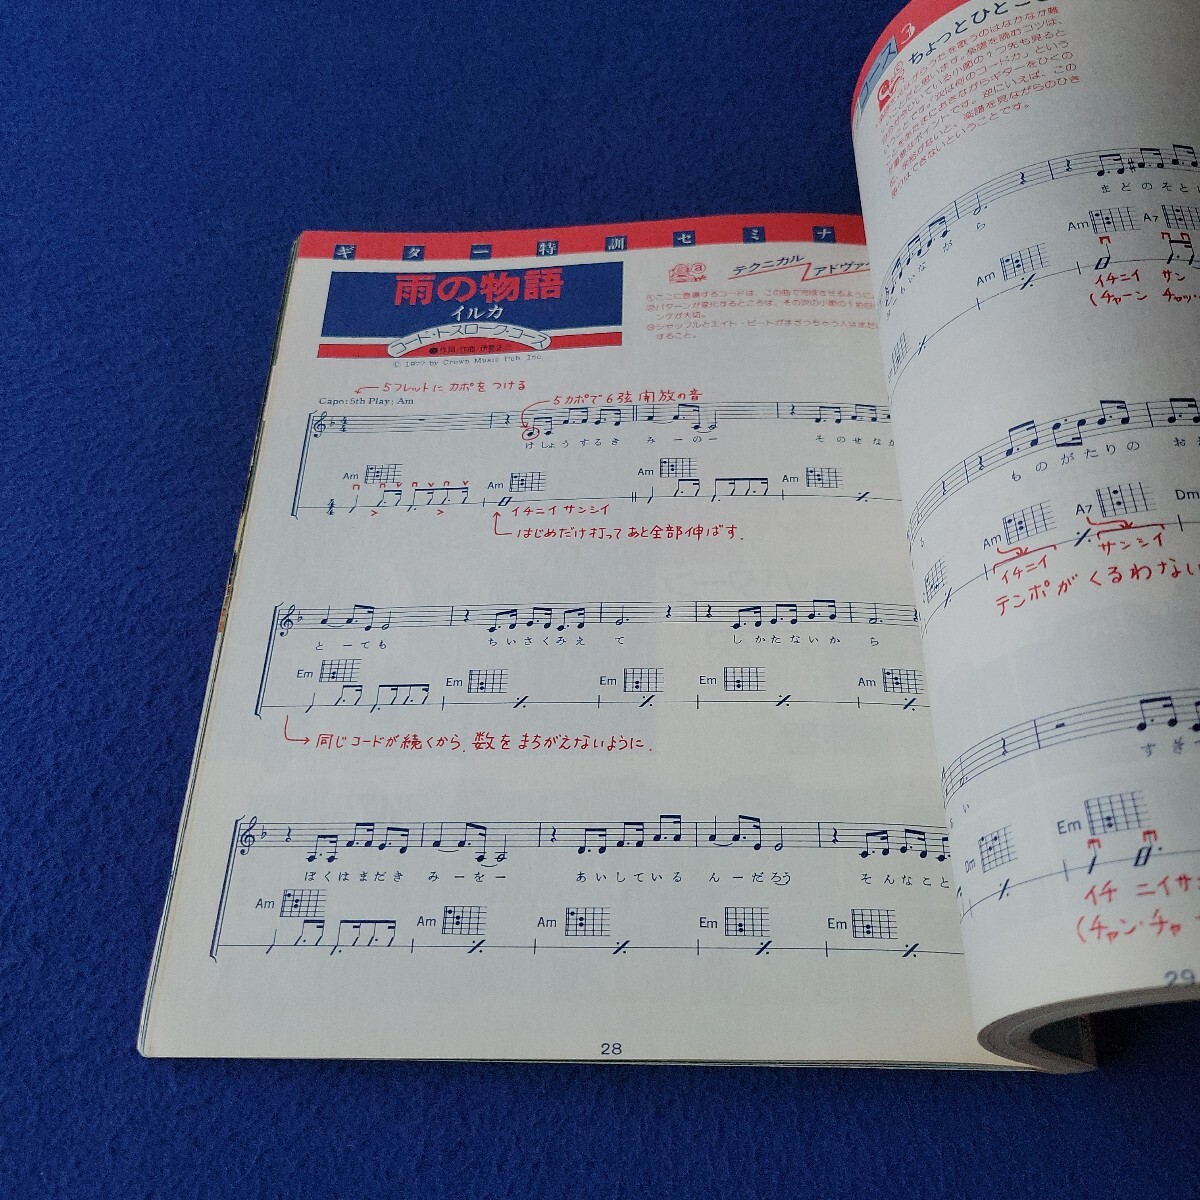 ギター特訓セミナ
雨の物語
イルカ
コード・ストローク・コース
© 1977 by Crown Music Pub. Inc.
テクニカル
アドヴァ
①ここに登場するコードは、この曲で完成させるように。
②パターンが変化するところは、その次の小節の1拍目
ングが大切。
③シャッフルとエイト・ビートがまざっちゃう人はまだ
すること。
5フレットにカポをつける
Capo: 5th Play: Am
5カポで6弦開放の音
けしょうするき みーのー そのせなか
Am Am Am Am
イチニイ サンシイ
はじめだけ打ってあと全部伸ばす.
とーても ちいさくみえ て しかたないか ら
Em Em Em Em Am
同じコードが続くから、数をまちがえないように.
ぼくはまだき みーをー あいしている んーだろう そんなこと
Am Am Am Em Em
28
コース
3
ちょっとひとこ
まどのそと
もいながら
Am Am A7
イチニイ サン
(チャーン チャッ
ものがたりの お
Am A7 Dm
イチニイ サンシイ
テンポがくるわない
い すぎ
Dm Em
イチ ニイサ
(チャン・チャ
29